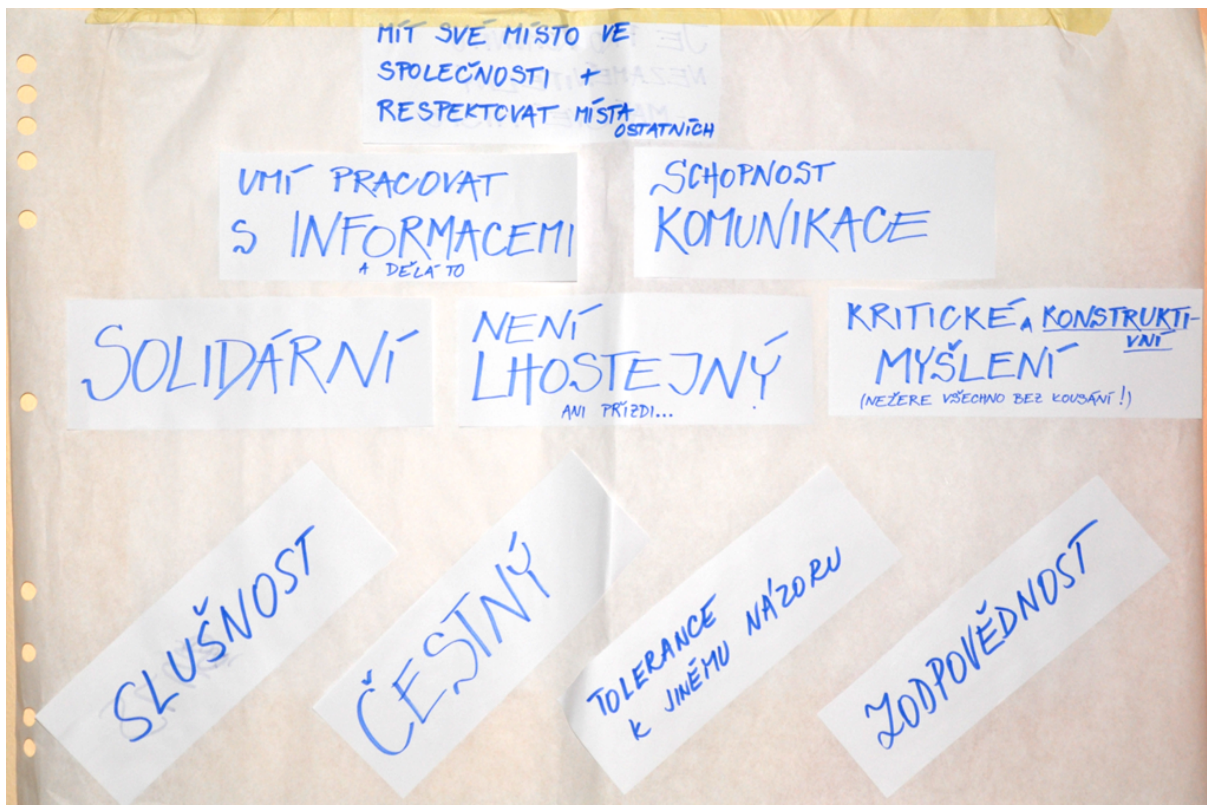 MÍT SVÉ MÍSTO VE
SPOLEČNOSTI +
RESPEKTOVAT MÍSTA
OSTATNÍCH
UMÍ PRACOVAT
S INFORMACEMI
A DĚLÁ TO
SCHOPNOST
KOMUNIKACE
SOLIDÁRNÍ
NENÍ
LHOSTEJNÝ
ANI PŘÍZDI...
KRITICKÉ A KONSTRUKTI-
VNÍ
MYŠLENÍ
(NEŽERE VŠECHNO BEZ KOUSÁNÍ!)
SLUŠNOST
ČESTNÝ
TOLERANCE
K JINÉMU NÁZORU
ZODPOVĚDNOST